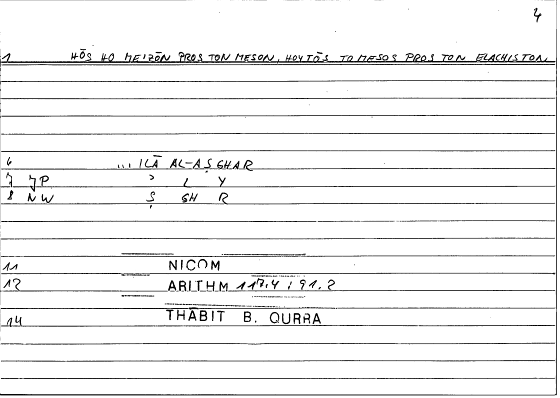 4
1 HŌS HO MEIZŌN PROS TON MESON, HOYTŌS TO MESOS PROS TON ELACHISTON.
6 ... ILĀ AL-AṢGHAR
7 JP ʾ L Y
8 NW Ṣ GH R
11 NICOM
12 ARITHM 117.4 ; 91.2
14 THĀBIT B. QURRA